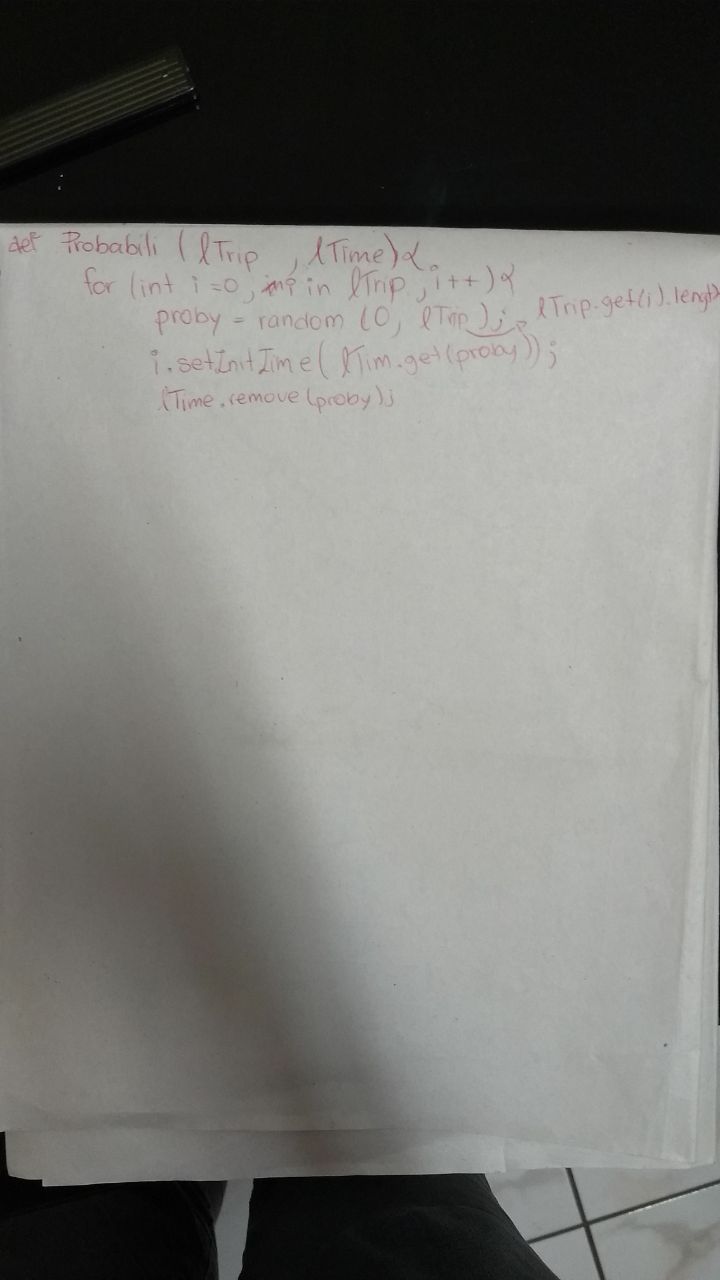 def Probabili (lTrip , lTime){
for (int i=0, in lTrip, i++){
proby = random (0, lTrip); lTrip.get(i).length
i.setInitTime( lTim.get(proby));
lTime.remove(proby);